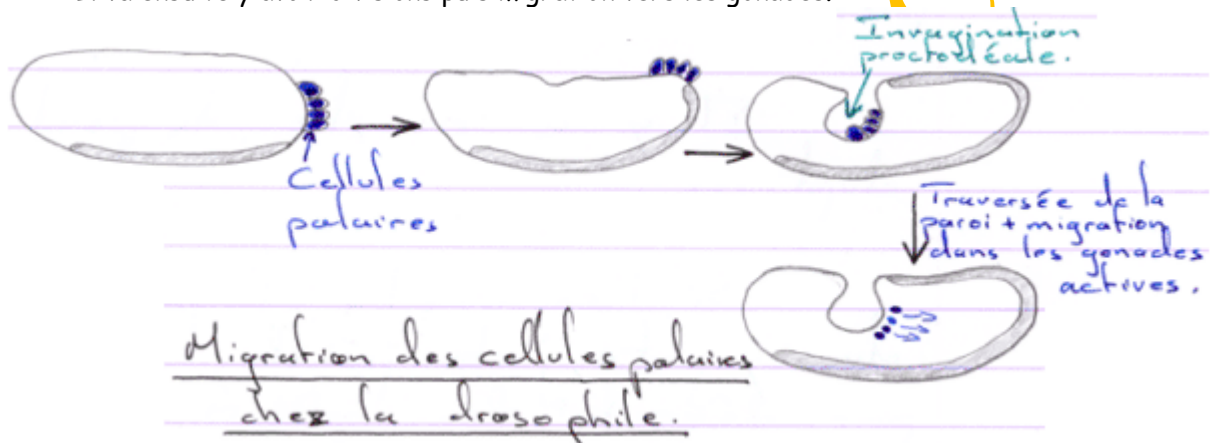 Invagination
proctodéale.
Cellules
polaires
Traversée de la
paroi + migration
dans les gonades
actives.
Migration des cellules polaires
chez la drosophile.